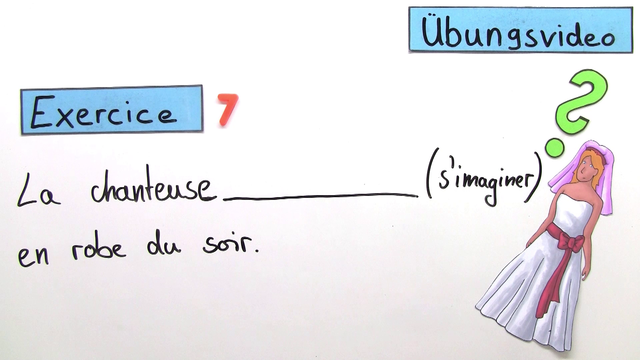 Übungsvideo
Exercice 7
La chanteuse __________ (s'imaginer)
en robe du soir.